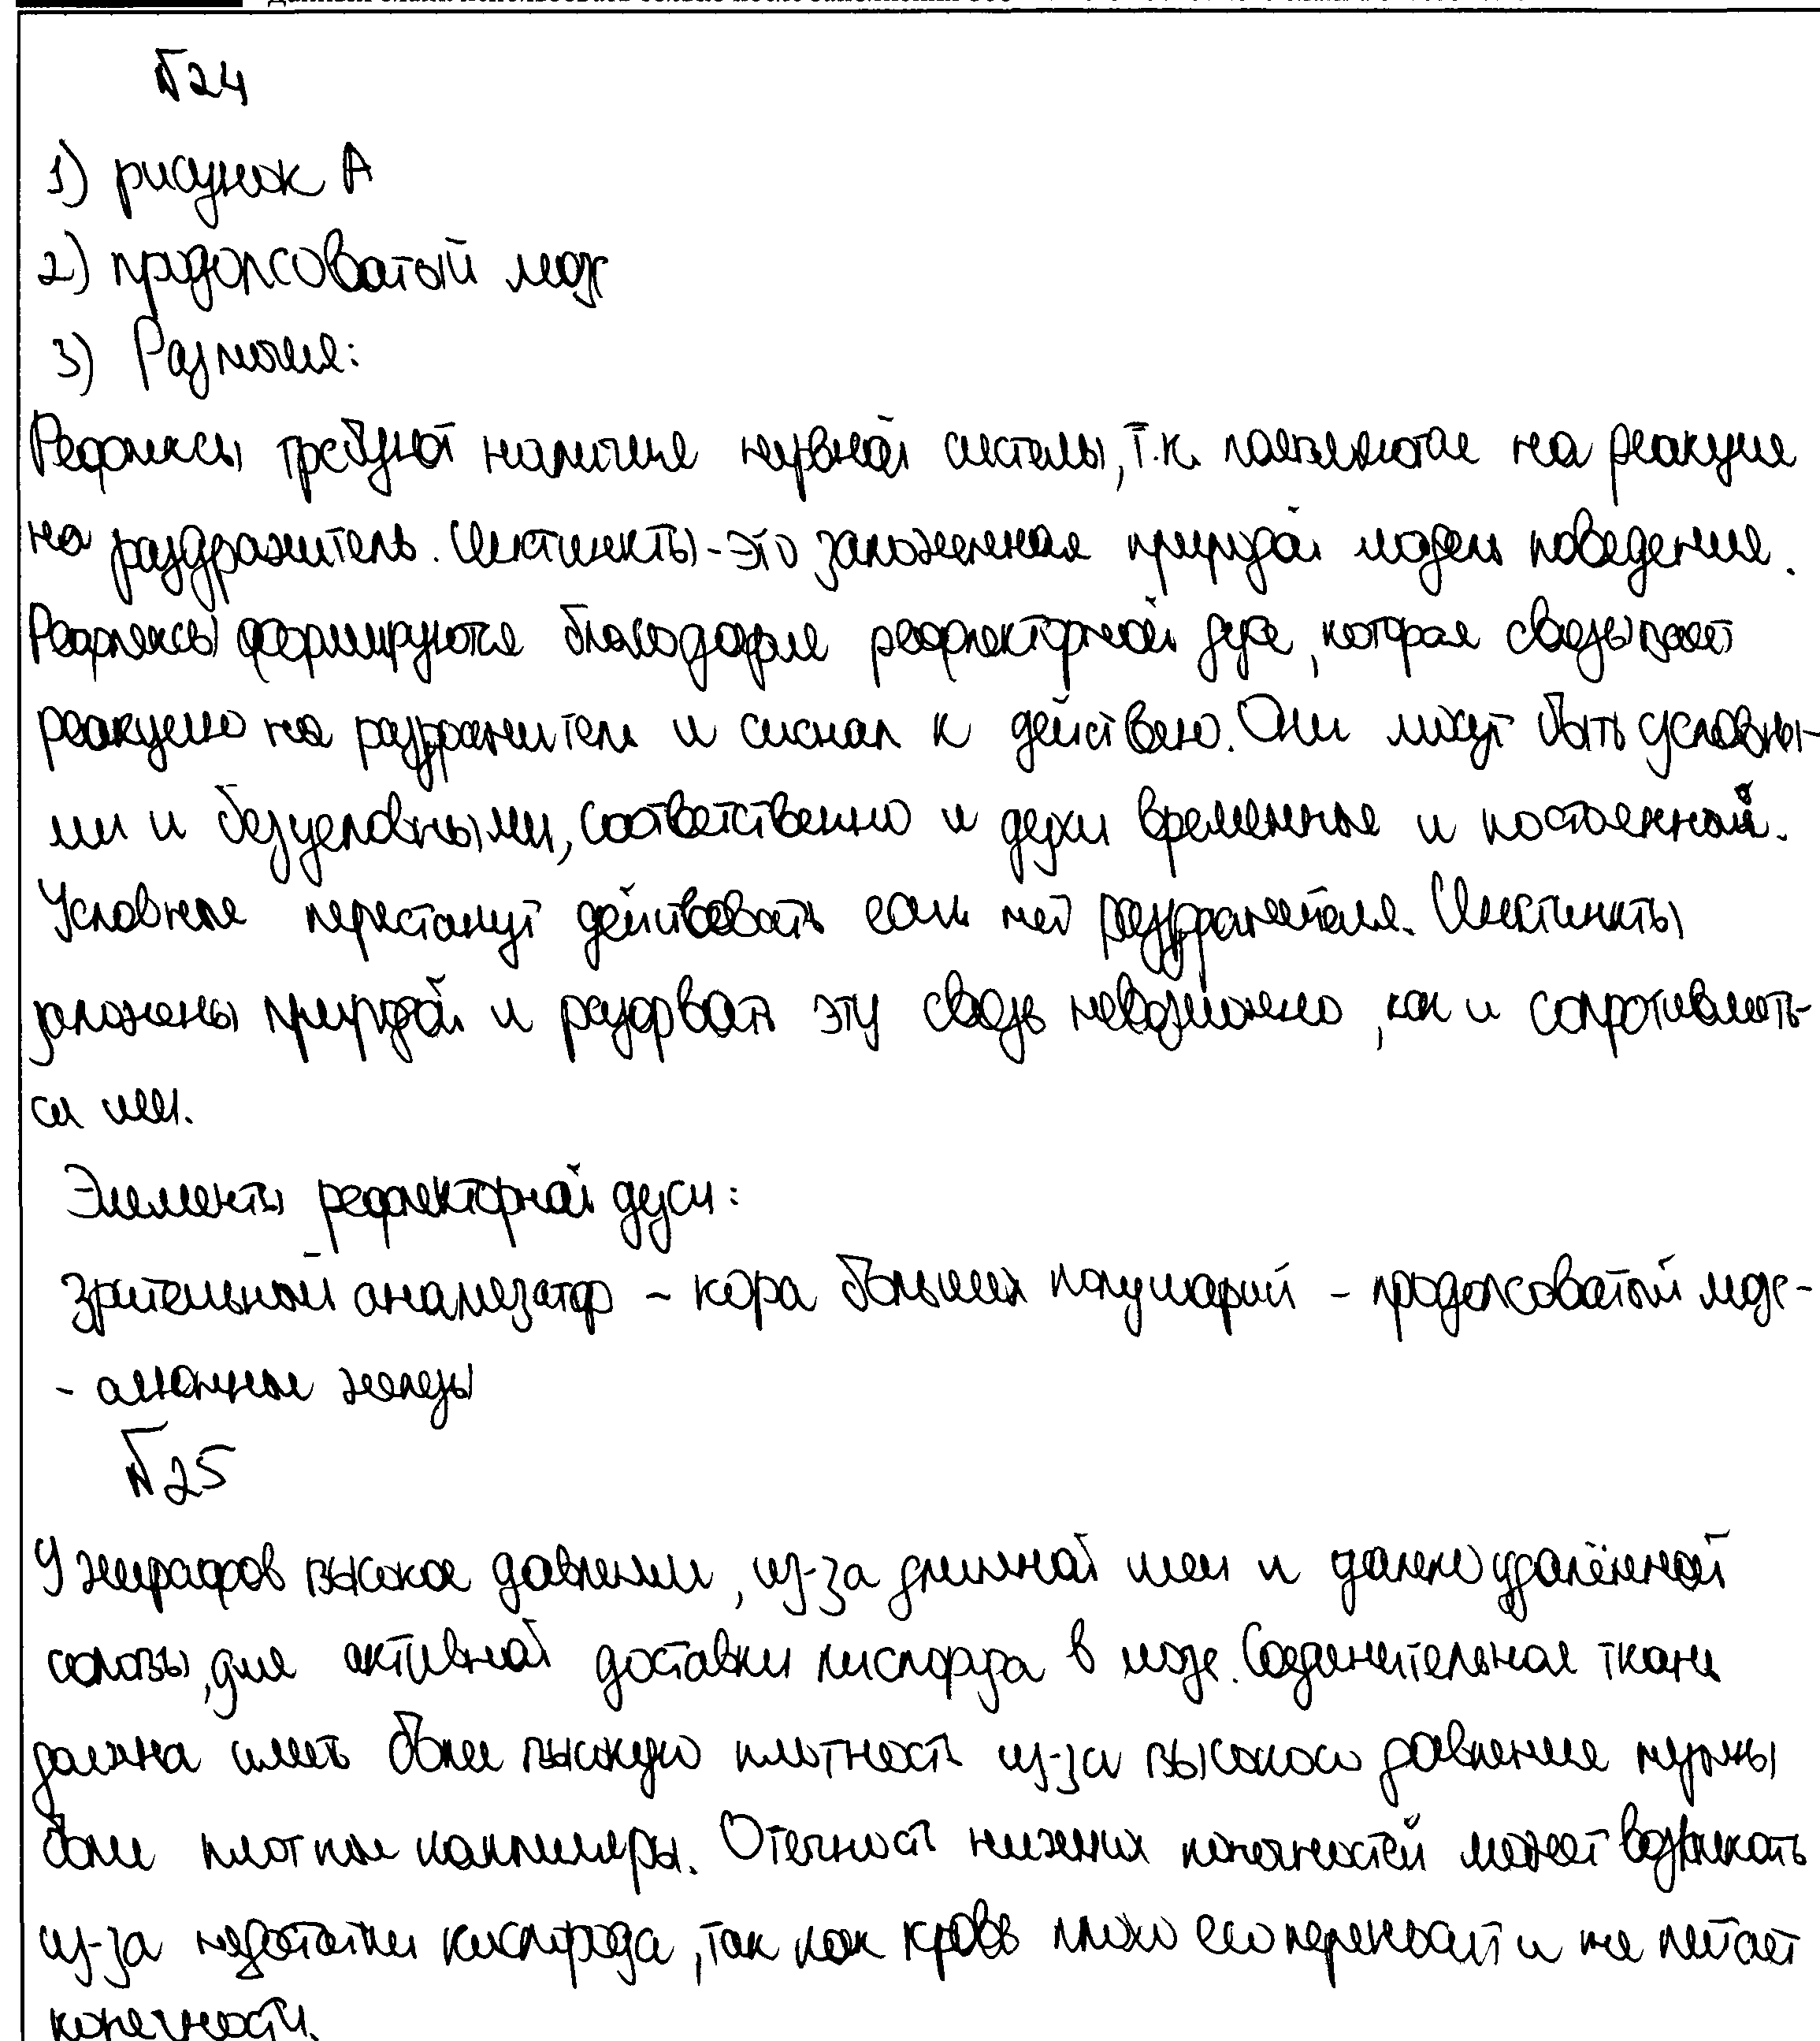 №24
1) рисунок А
2) продолговатый мозг
3) Различия:
Рефлексы требуют наличие нервной системы, т.к. появляются на реакцию
на раздражитель. Инстинкты - это заложенная природой модель поведения.
Рефлексы формируются благодаря рефлекторной дуге, которая связывает
реакцию на раздражитель и сигнал к действию. Они могут быть условны-
ми и безусловными, соответственно и дуги временные и постоянной.
Условные перестанут действовать если нет раздражителя. Инстинкты
заложены природой и разорвать эту связь невозможно, как и сопротивлять-
ся им.
Элементы рефлекторной дуги:
Зрительный анализатор - кора больших полушарий - продолговатый мозг -
- слюнные железы
№25
У жирафов высокое давлении, из-за длинной шеи и далеко удалённой
головы, для активной доставки кислорода в мозг. Соединительная ткань
должна иметь более высокую плотность из-за высокого давления нужны
более плотные капилляры. Отечность нижних конечностей может возникать
из-за недостатки кислорода, так как кровь плохо его переносит и не питает
конечности.